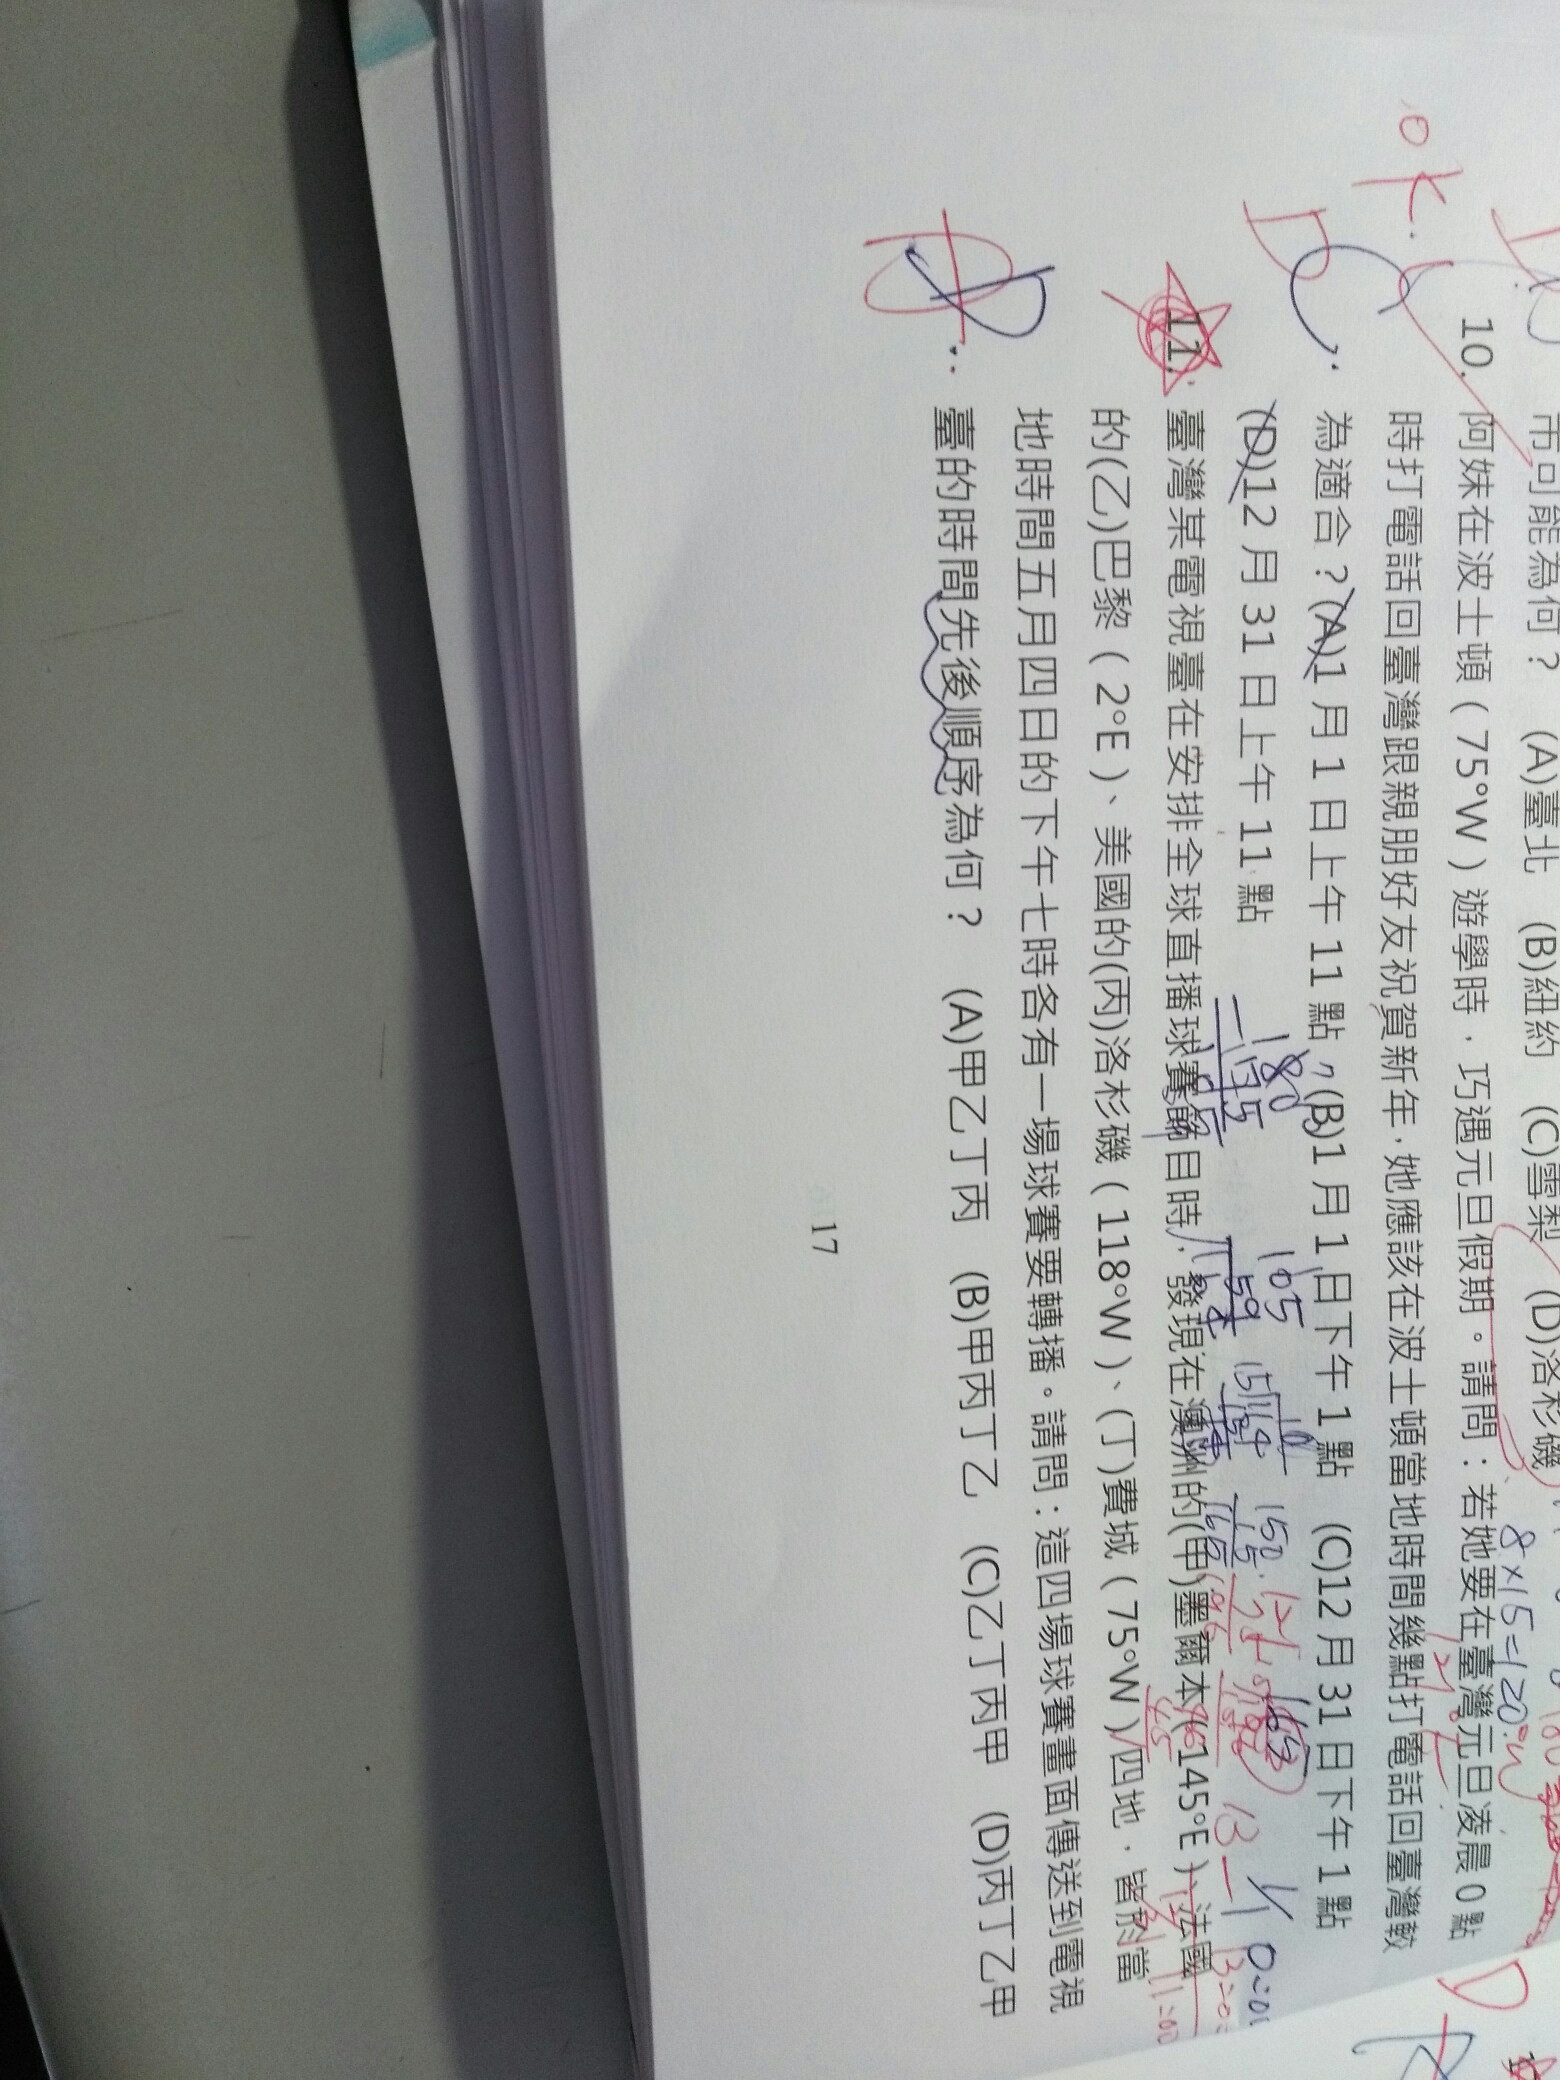 市可能為何？ (A)臺北 (B)紐約 (C)雪梨 (D)洛杉磯
8×15=120°W
10. 阿妹在波士頓（75°W）遊學時，巧遇元旦假期。請問：若她要在臺灣元旦凌晨0點
時打電話回臺灣跟親朋好友祝賀新年，她應該在波士頓當地時間幾點打電話回臺灣較
為適合？(A)1月1日上午11點 (B)1月1日下午1點 (C)12月31日下午1點
(D)12月31日上午11點
ok.
D
180
105
150
11. 臺灣某電視臺在安排全球直播球賽節目時，發現在澳洲的(甲)墨爾本（145°E）、法國
的(乙)巴黎（2°E）、美國的(丙)洛杉磯（118°W）、(丁)費城（75°W）四地，皆於當
地時間五月四日的下午七時各有一場球賽要轉播。請問：這四場球賽畫面傳送到電視
臺的時間先後順序為何？ (A)甲乙丁丙 (B)甲丙丁乙 (C)乙丁丙甲 (D)丙丁乙甲
17